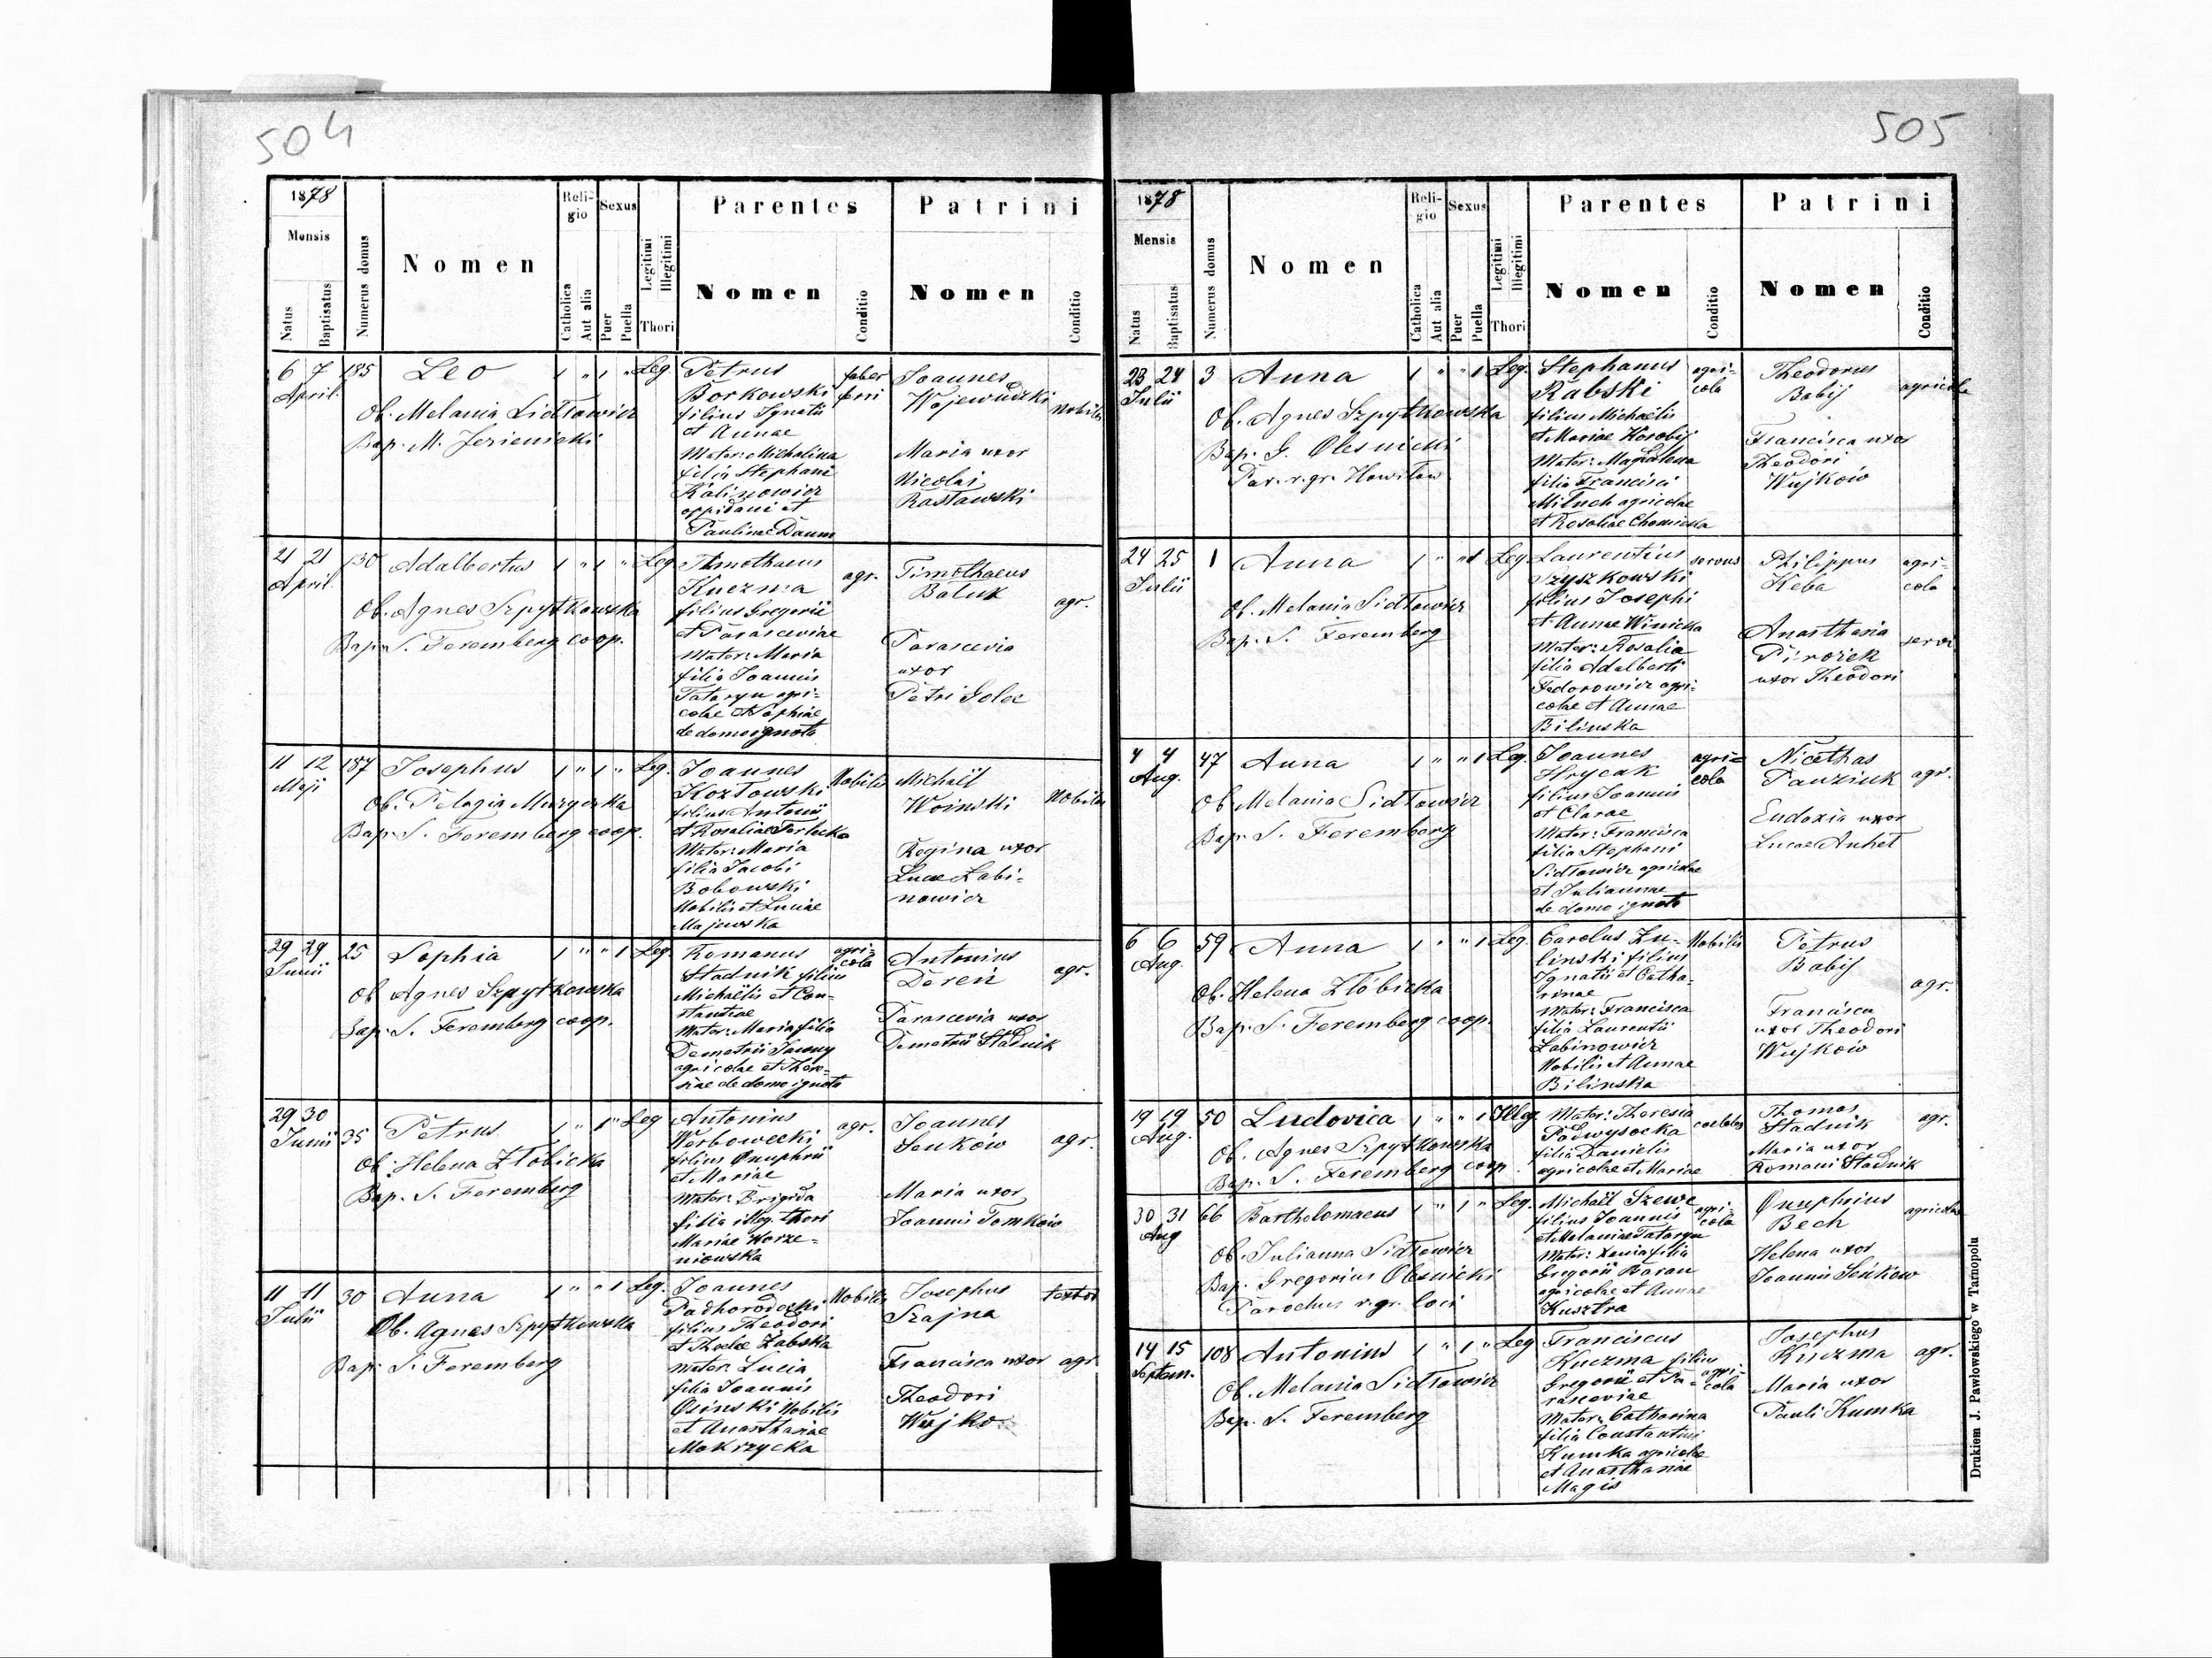 504
1878
Mensis
Natus
Baptisatus
Numerus domus
Nomen
Religio
Catholica
Aut alia
Sexus
Puer
Puella
Legitimi
Illegitimi
Thori
Parentes
Nomen
Conditio
Patrini
Nomen
Conditio
6 7 185 Leo 1 " 1 " Leg.
April.
Ob. Melania Sidłowicz
Bap. M. Jezienicki
Petrus
Borkowski
filius Ignatii
et Annae
Mater: Michalina
filia Stephani
Kalinowicz
oppidani et
Paulinae Daum
faber
ferri
Joannes
Wojewudzki
Nobilis
Maria uxor
Nicolai
Rastawski
21 21 130 Adalbertus 1 " 1 " Leg.
April.
Ob. Agnes Szpytkowska
Bap. S. Feremberg coop.
Timothaeus
Kuczma
filius Gregorii
et Parasceviae
Mater: Maria
filia Joannis
Tataryn agri-
colae et Sophiae
de domo ignota
agr.
Timothaeus
Baluk
agr.
Parascevia
uxor
Petri Golec
11 12 187 Josephus 1 " 1 " Leg.
Maji
Ob. Pelagia Muzyczka
Bap. S. Feremberg coop.
Joannes
Kozłowski
filius Antonii
et Rosaliae Terlecka
Mater: Maria
filia Jacobi
Bobowski
Nobilis et Luciae
Majewska
Nobilis
Michaël
Woinski
Nobilis
Regina uxor
Lucae Łabi-
nowicz
29 29 25 Sophia 1 " " 1 Leg.
Junii
Ob. Agnes Szpytkowska
Bap. S. Feremberg coop.
Romanus
Stadnik filius
Michaëlis et Con-
stantiae
Mater: Maria filia
Demetrii
agricolae et There-
siae de domo ignota
agri-
cola
Antonius
Dereń
agr.
Parascevia uxor
Demetrii Stadnik
29 30 35 Petrus 1 " 1 " Leg
Junii
Ob. Helena Złobicka
Bap. S. Feremberg
Antonius
Werbowecki
filius Onuphrii
et Mariae
Mater: Brigida
filia illeg. thori
Mariae Korze-
niowska
agr.
Joannes
Senkow
agr.
Maria uxor
Joannis Tomkow
11 11 30 Anna 1 " " 1 Leg.
Julii
Ob. Agnes Szpytkowska
Bap. S. Feremberg
Joannes
Padhorodecki
filius Theodori
et Theclae Zabska
Mater: Lucia
filia Joannis
Osinski Nobilis
et Anasthasiae
Mokrzycka
Nobilis
Josephus
Szajna
textor
Francisca uxor
agr.
Theodori
Wujko
505
1878
Mensis
Natus
Baptisatus
Numerus domus
Nomen
Religio
Catholica
Aut alia
Sexus
Puer
Puella
Legitimi
Illegitimi
Thori
Parentes
Nomen
Conditio
Patrini
Nomen
Conditio
23 24 3 Anna 1 " " 1 Leg.
Julii
Ob. Agnes Szpytkowska
Bap. G. Olesnicki
Par. r. gr. Howilow
Stephanus
Rabski
filius Michaëlis
et Mariae Kosobij
Mater: Magdalena
filia Francisci
Miluch agricolae
et Rosaliae Chomicka
agri-
cola
Theodorus
Babij
agricola
Francisca uxor
Theodori
Wujkow
24 25 1 Anna 1 " " 1 Leg.
Julii
Ob. Melania Sidłowicz
Bap. S. Feremberg
Laurentius
Szyszkowski
filius Josephi
et Annae Winicka
Mater: Rosalia
filia Adalberti
Fedorowicz agri-
colae et Annae
Bilinska
servus
Philippus
Keba
agri-
cola
Anasthasia
Pirożek
uxor Theodori
servi
4 4 47 Anna 1 " " 1 Leg.
Aug.
Ob. Melania Sidłowicz
Bap. S. Feremberg
Joannes
Hrycak
filius Joannis
et Clarae
Mater: Francisca
filia Stephani
Sidłowicz agricolae
et Juliannae
de domo ignota
agri-
cola
Nicethas
Pauziuk
agr.
Eudoxia uxor
Lucae Anhel
6 6 59 Anna 1 " " 1 Leg.
Aug.
Ob. Helena Złobicka
Bap. S. Feremberg coop.
Carolus Zu-
linski filius
Ignatii et Catha-
rinae
Mater: Francisca
filia Laurentii
Łabinowicz
Nobilis et Annae
Bilinska
Nobilis
Petrus
Babij
agr.
Francisca
uxor Theodori
Wujkow
19 19 50 Ludovica 1 " " 1 Illeg.
Aug.
Ob. Agnes Szpytkowska
Bap. S. Feremberg coop.
Mater: Theresia
Padwysocka
filia Danielis
agricolae et Mariae
caelebs
Thomas
Stadnik
agr.
Maria uxor
Romani Stadnik
30 31 66 Bartholomaeus 1 " 1 " Leg.
Aug
Ob. Julianna Sidłowicz
Bap. Gregorius Olesnicki
Parochus r. gr. loci
Michaël Szewc
filius Joannis
et Melaniae Tataryn
Mater: Xenia filia
Gregorii Baran
agricolae et Annae
Kusztra
agri-
cola
Onuphrius
Bech
agricola
Helena uxor
Joannis Seńkow
14 15 108 Antonius 1 " 1 " Leg
Septem.
Ob. Melania Sidłowicz
Bap. S. Feremberg
Franciscus
Kuczma filius
Gregorii et Pa-
rasceviae
Mater: Catharina
filia Constantini
Kumka agricolae
et Anasthasiae
Magis
agri-
cola
Josephus
Kuczma
agr.
Maria uxor
Pauli Kumka
Drukiem J. Pawłowskiego w Tarnopolu